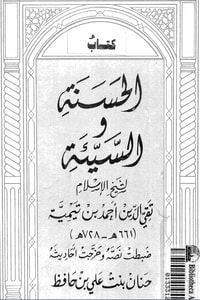 كتاب
الحسنة
و
السيئة
لشيخ الإسلام
تقي الدين أحمد بن تيمية
(٦٦١هـ - ٧٢٨هـ)
ضبطت نصه وخرجت أحاديثه
حنان بنت علي بن حافظ
Bibliotheca A